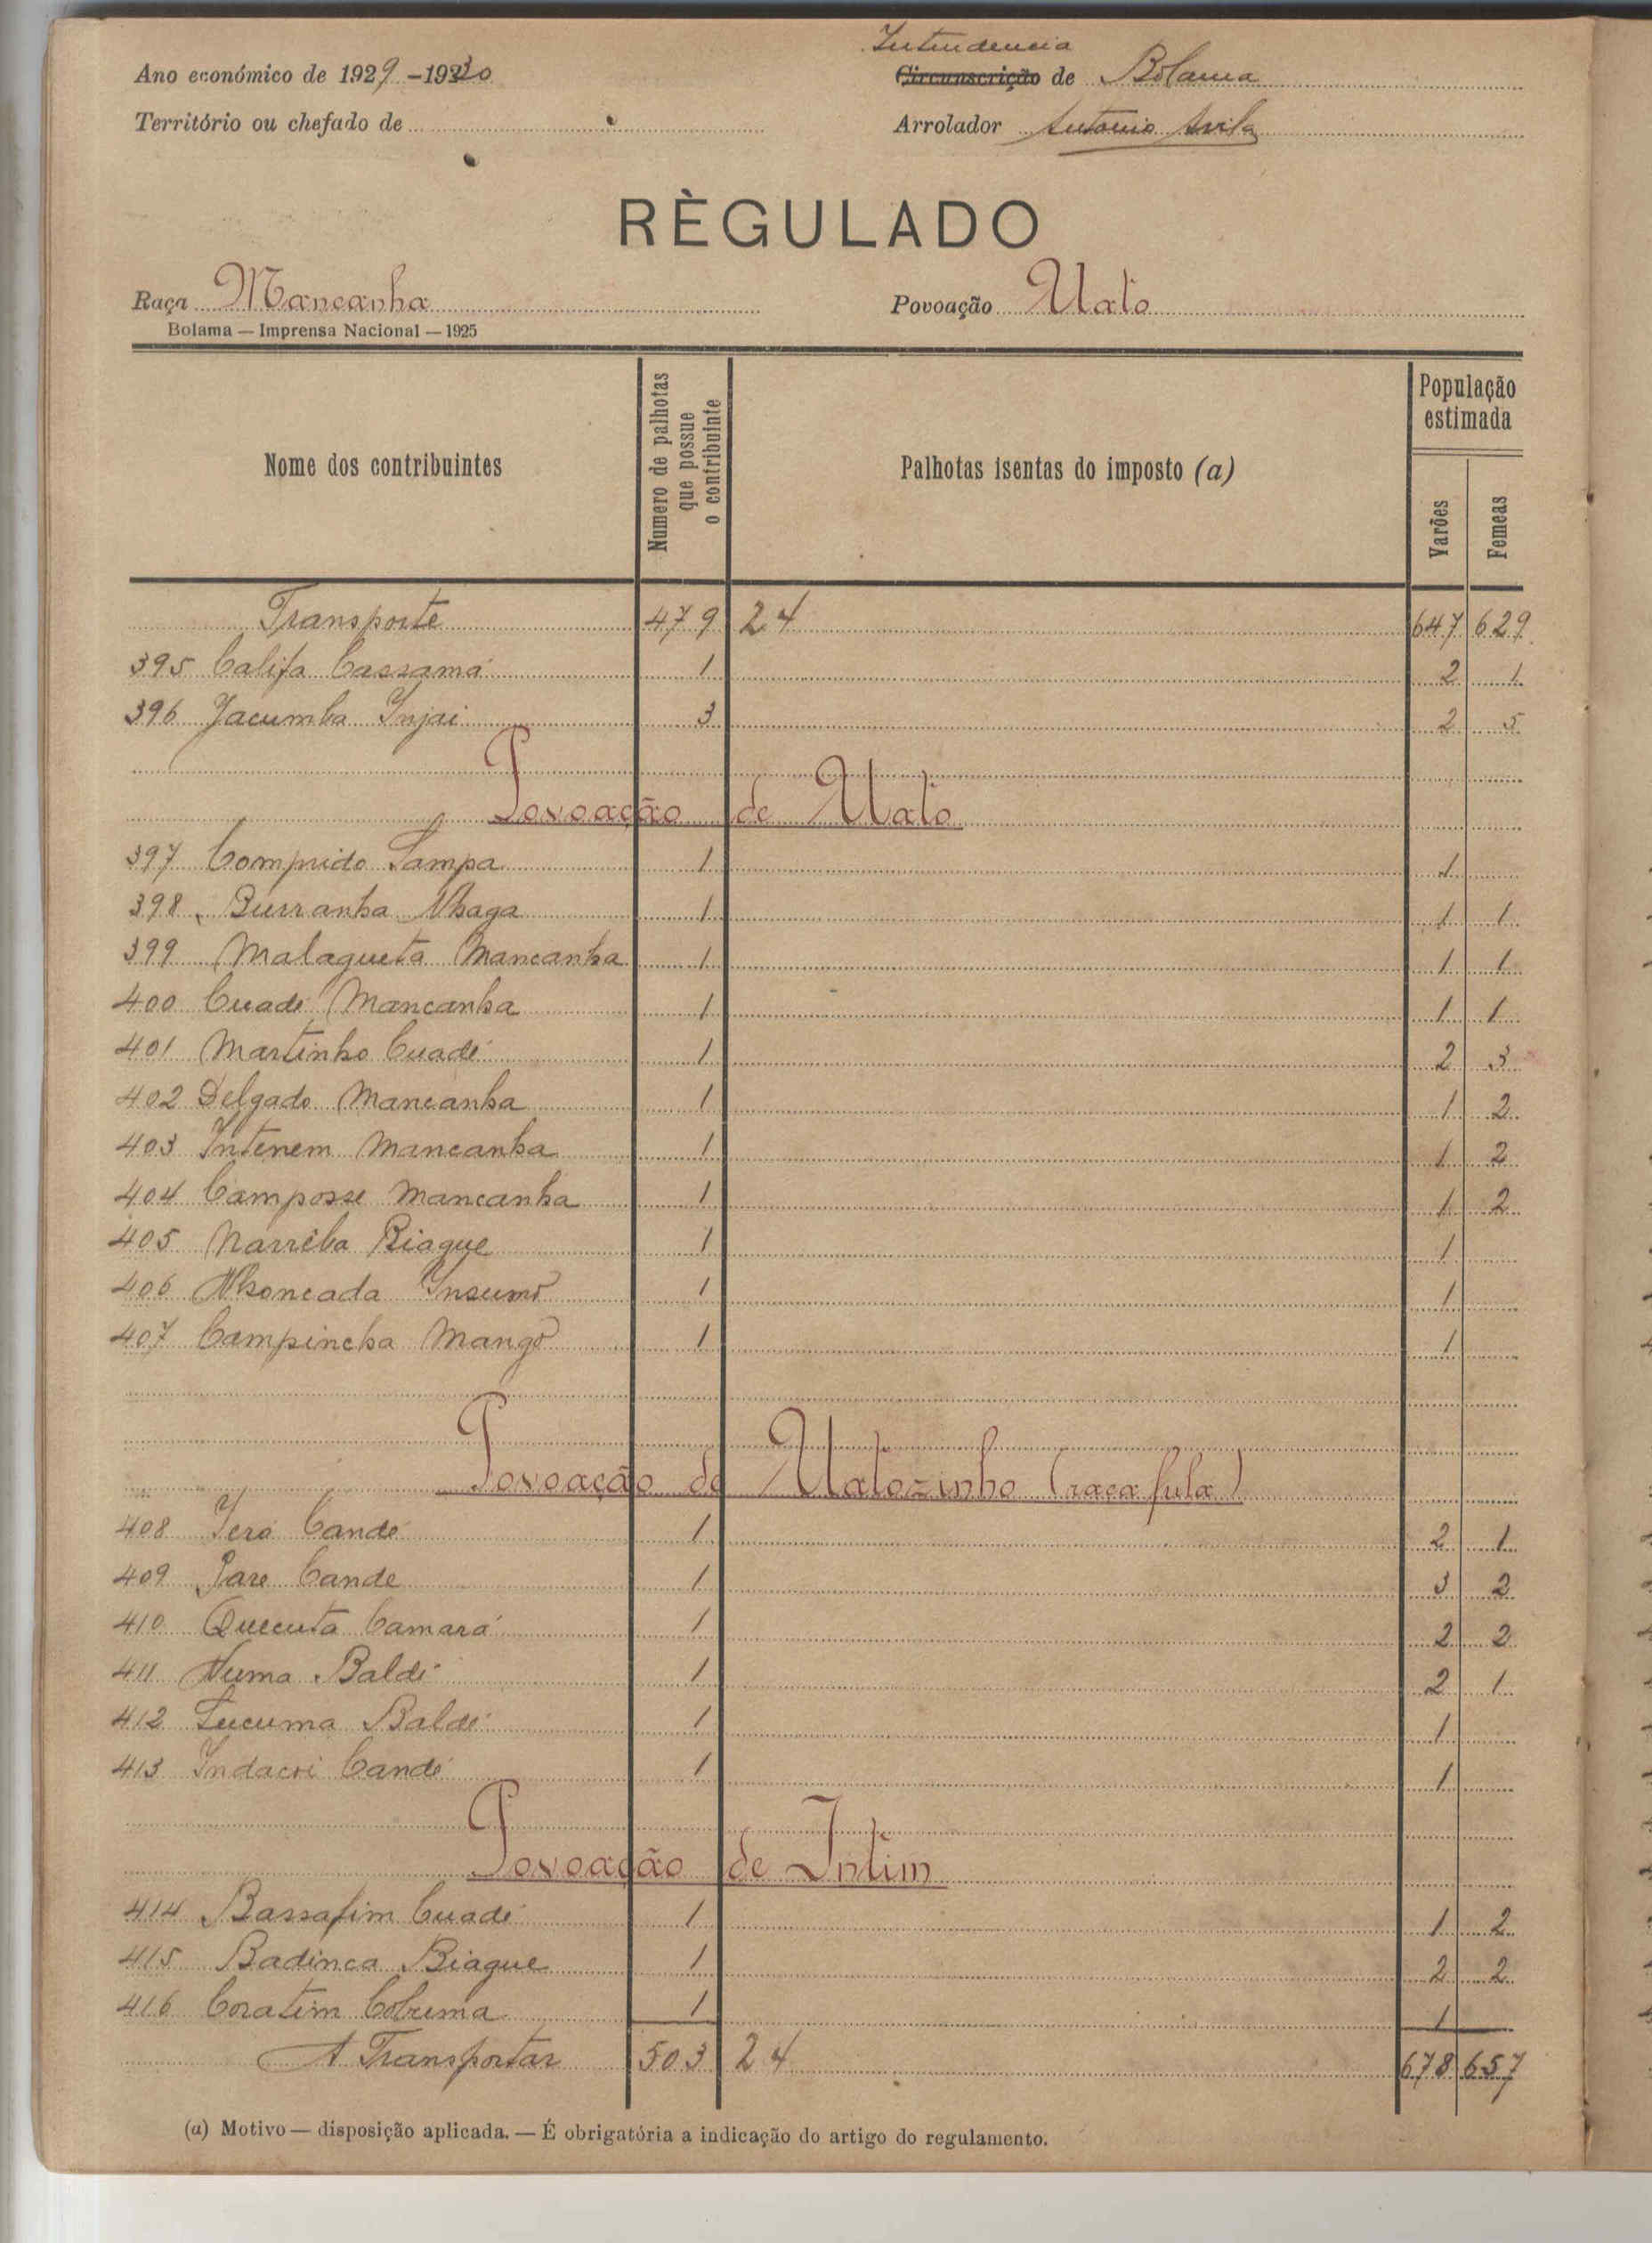 Intendencia
Ano económico de 1929-1930 Circunscrição de Bolama
Território ou chefado de Arrolador Antonio Avila
RÈGULADO
Raça Mancanha Povoação Uato
Bolama — Imprensa Nacional — 1925
Nome dos contribuintes Numero de palhotas que possue o contribuinte Palhotas isentas do imposto (a) População estimada Varões Femeas
Transporte 479 24 647 629
395 Califa Cassamá 1 2 1
396 Jacumba Injai 3 2 5
Povoação de Uato
397 Comprido Sampa 1 1
398 Burranha Nhaga 1 1 1
399 Malagueta Mancanha 1 1 1
400 Cuadé Mancanha 1 1 1
401 Martinho Cuadé 1 2 3
402 Delgado Mancanha 1 1 2
403 Intenem Mancanha 1 1 2
404 Camposse Mancanha 1 1 2
405 Narriba Biague 1 1
406 Nhoncada Insumó 1 1
407 Campincha Mangó 1 1
Povoação de Uatozinho (raça fula)
408 Jeró Candé 1 2 1
409 Pare Cande 1 3 2
410 Quecuta Camará 1 2 2
411 Numa Baldé 1 2 1
412 Sucuma Baldé 1 1
413 Indacri Candé 1 1
Povoação de Intim
414 Bassafim Cuadé 1 1 2
415 Badinca Biague 1 2 2
416 Coratim Cobuma 1 1
A Transportar 503 24 678 657
(a) Motivo — disposição aplicada. — É obrigatória a indicação do artigo do regulamento.